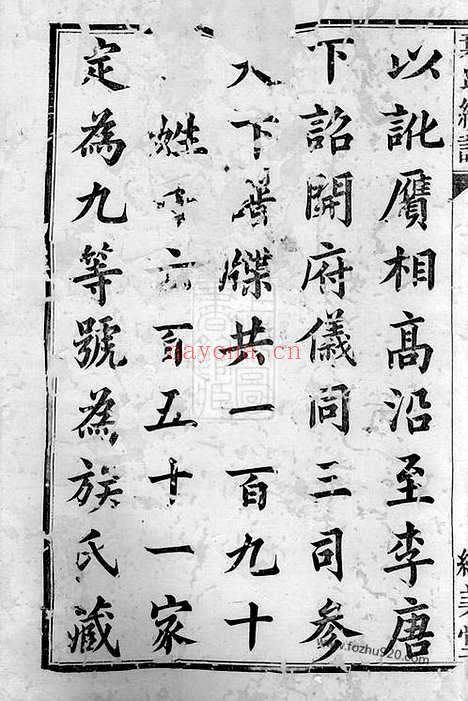 以訛贋相高沿至李唐
下詔開府儀同三司參
下譜牒共一百九十
姓六百五十一家
定為九等號為族氏藏
nayona.cn
www.fozhu920.com